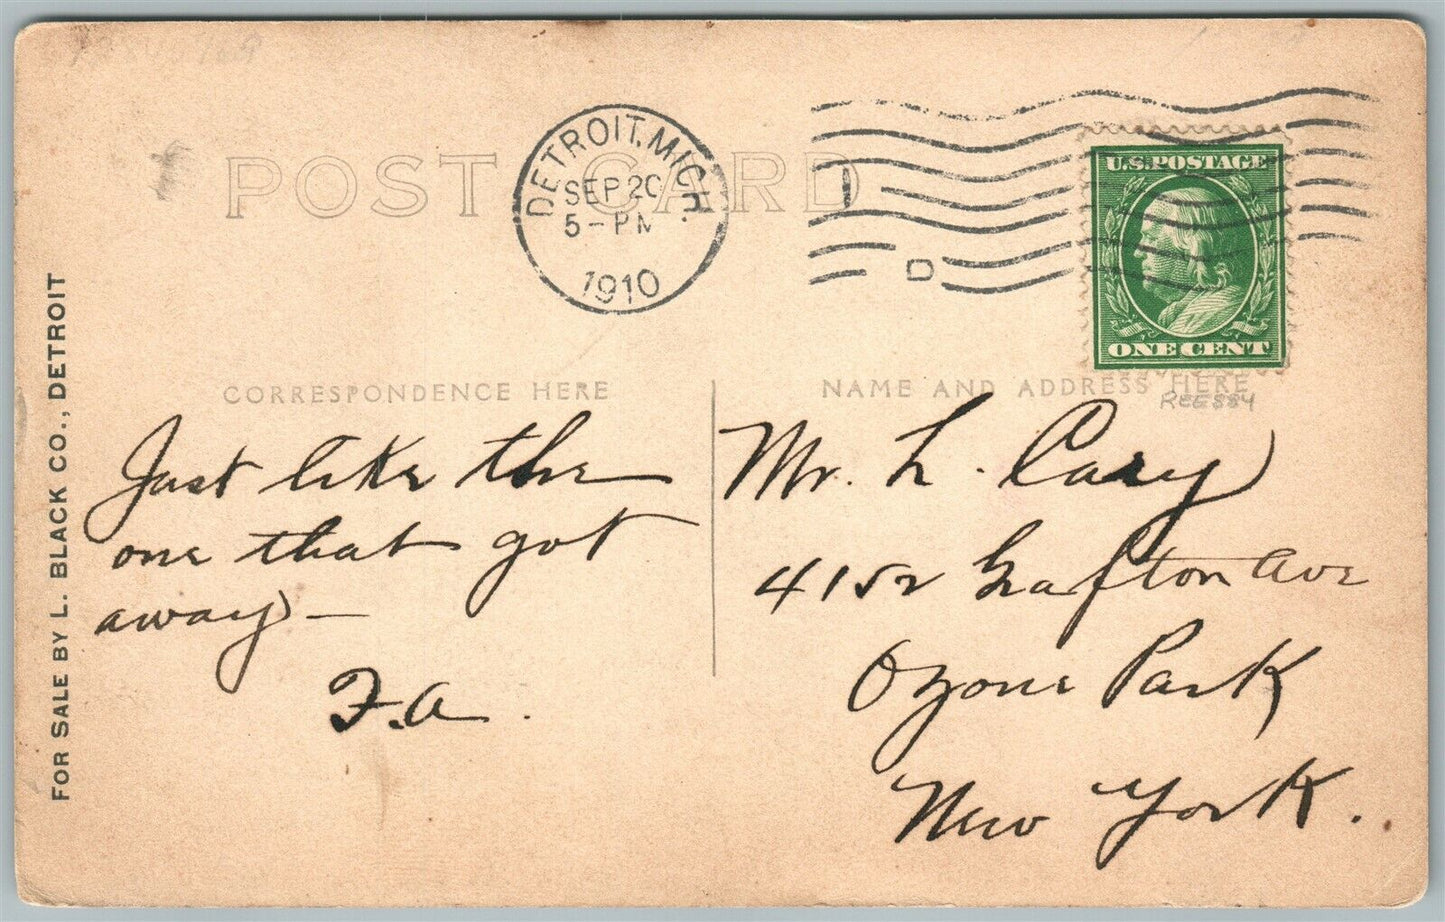 POST CARD
DETROIT, MICH.
SEP 20
5-PM
1910
U.S. POSTAGE
ONE CENT
CORRESPONDENCE HERE
NAME AND ADDRESS HERE
Just like the
one that got
away —
F.A.
Mr. L. Carey
4152 Grafton Ave
Ozone Park
New York.
FOR SALE BY L. BLACK CO., DETROIT